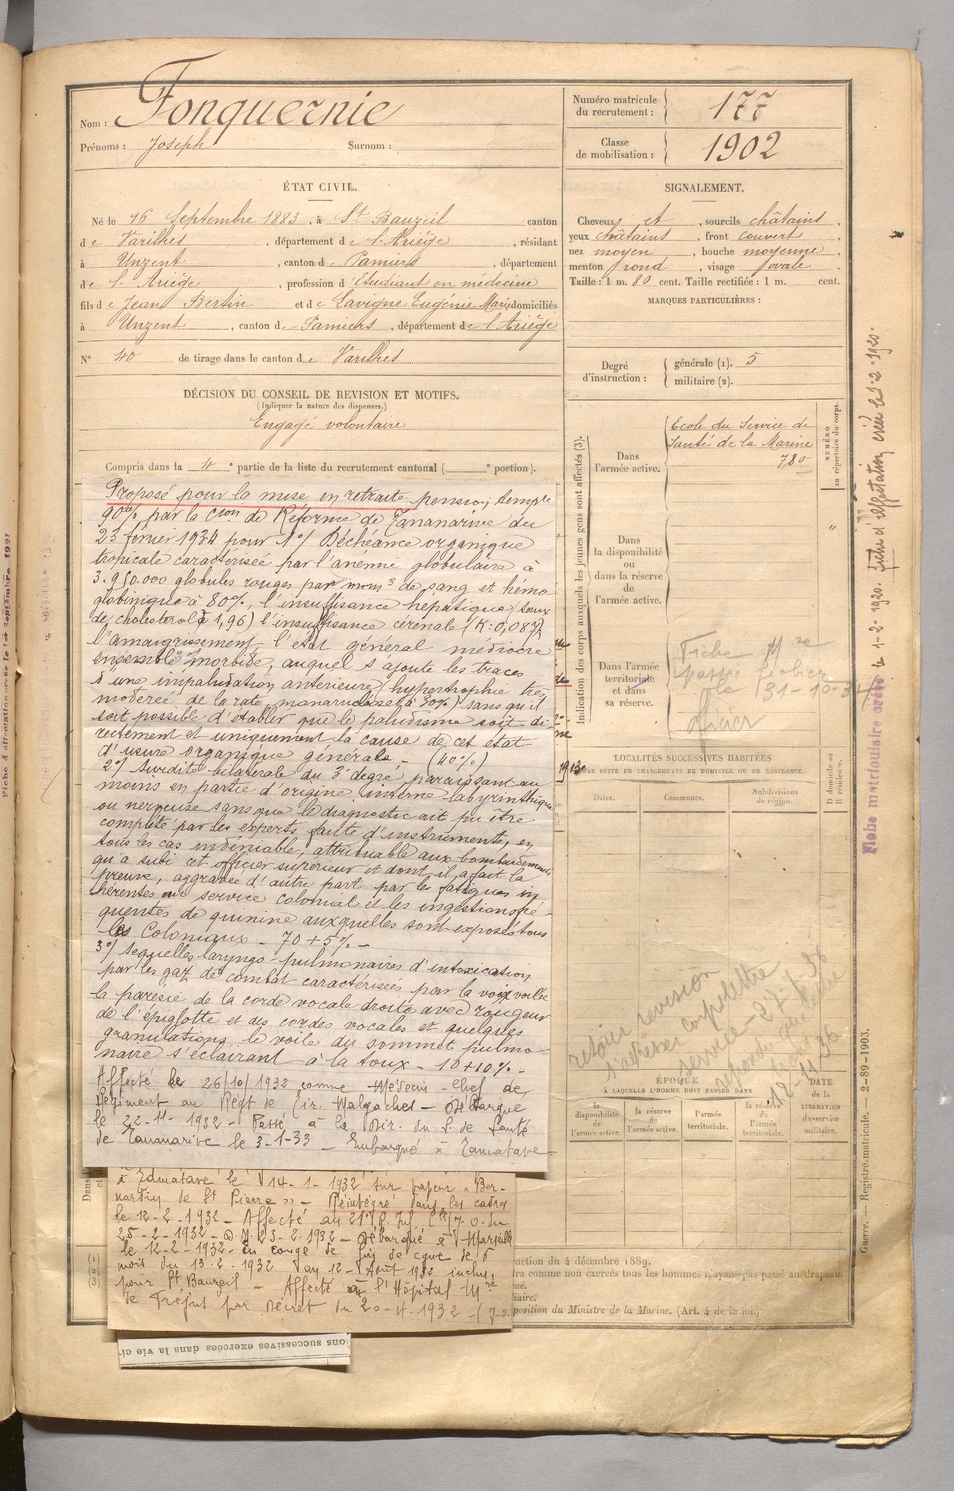 Nom : Fonquernie
Prénoms : Joseph Surnom :
Numéro matricule du recrutement : 177
Classe de mobilisation : 1902
ÉTAT CIVIL.
Né le 16 Septembre 1883, à St Bauzeil canton
de Varilhes, département de l'Ariège, résidant
à Unzent, canton de Pamiers, département
de l'Ariège, profession d'Étudiant en médecine
fils de Jean Bertin et de Lavigne Eugénie Marie domiciliés
à Unzent, canton de Pamiers, département de l'Ariège
N° 40 de tirage dans le canton de Varilhes
SIGNALEMENT.
Cheveux et, sourcils châtains,
yeux châtains, front couvert
nez moyen, bouche moyenne
menton rond, visage ovale
Taille : 1 m. 80 cent. Taille rectifiée : 1 m. cent.
MARQUES PARTICULIÈRES :
Degré d'instruction : générale (1). 5
militaire (2).
DÉCISION DU CONSEIL DE REVISION ET MOTIFS.
(Indiquer la nature des dispenses.)
Engagé volontaire
Compris dans la 4e partie de la liste du recrutement cantonal (e portion).
Proposé pour la mise en retraite pension temp
90% par la Cson de Réforme de Tananarive du
23 février 1934 pour 1°/ Déchéance organique
tropicale caractérisée par l'anémie globulaire à
3.950.000 globules rouges par mm3 de sang et hémo
globinique à 80%, l'insuffisance hépatique (taux
de cholestérol à 1,96) l'insuffisance rénale (K:0,087)
l'amaigrissement l'état général médiocre
ensemble morbide, auquel s'ajoute les traces
d'une impaludation antérieure (hypertrophie très
modérée de la rate 30%) sans qu'il
soit possible d'établir que le paludisme soit di-
rectement et uniquement la cause de cet état
d'usure organique générale - (40%)
2°/ Surdité bilatérale du 3e degré, paraissant au
moins en partie d'origine interne labyrinthique
ou nerveuse sans que le diagnostic ait pu être
complété par les experts faute d'instruments, en
tous les cas indéniable, attribuable aux bombardements
qu'a subi cet officier supérieur et dont il a fait la
preuve, aggravée d'autre part par les fatigues in
hérentes au service colonial et les ingestions fré-
quentes de quinine auxquelles sont exposés tous
les Coloniaux - 70+5% -
3°/ Séquelles laryngo-pulmonaires d'intoxication
par les gaz de combat caractérisées par la voix voilée
la parésie de la corde vocale droite avec rougeur
de l'épiglotte et des cordes vocales et quelques
granulations, le voile du sommet pulmo-
naire s'éclairant à la toux - 10+10% -
Affecté le 26/10/1932 comme Médecin-Chef de
Régiment au Régt de Tir. Malgaches - Débarqué
le 22-11-1932 - Passé à la Dir. du S. de Santé
de Tananarive le 3-1-33 - Embarqué à Tamatave
à Tamatave le 14-1-1932 sur vapeur "Ber-
nardin de St Pierre" - Réintégré dans les cadres
le 12-2-1932 - Affecté au (J.O. du
25-2-1932 - D.M. 23-2-1932 - Débarqué à Marseille
le 12-2-1932 - en congé de fin de cgne de 6
mois du 13-2-1932 au 12 Août 1932 inclus
pour St Bauzeil - Affecté à l'Hôpital Mre
de Fréjus par Décret du 20-4-1932 - (J.O.
ions successives exercées dans la vie ci
Indication des corps auxquels les jeunes gens sont affectés (3).
Dans l'armée active.
École du Service de
Santé de la Marine
780
NUMÉRO au répertoire du corps.
Dans la disponibilité ou dans la réserve de l'armée active.
Dans l'armée territoriale et dans sa réserve.
Fiche Mre
le 31-10-34
officier
LOCALITÉS SUCCESSIVES HABITÉES
PAR SUITE DE CHANGEMENTS DE DOMICILE OU DE RÉSIDENCE.
Dates. Communes. Subdivisions de région. D domicile ou R résidence.
retour revision
s'adresser
service - 27-7-36
12-11-36
ÉPOQUE
À LAQUELLE L'HOMME DOIT PASSER DANS
la disponibilité de l'armée active. la réserve de l'armée active. l'armée territoriale. la réserve de l'armée territoriale.
DATE de la LIBÉRATION du service militaire.
uction du 4 décembre 1889.
dra comme non exercés tous les hommes n'ayant pas passé au drapeau.
position du Ministre de la Marine. (Art. 4 de la loi.)
Guerre. — Registre-matricule. — 2-89-1903.
Fiche matriculaire créée le 1-2-1920. Fiche d'affectation créée le 1-2-1920.